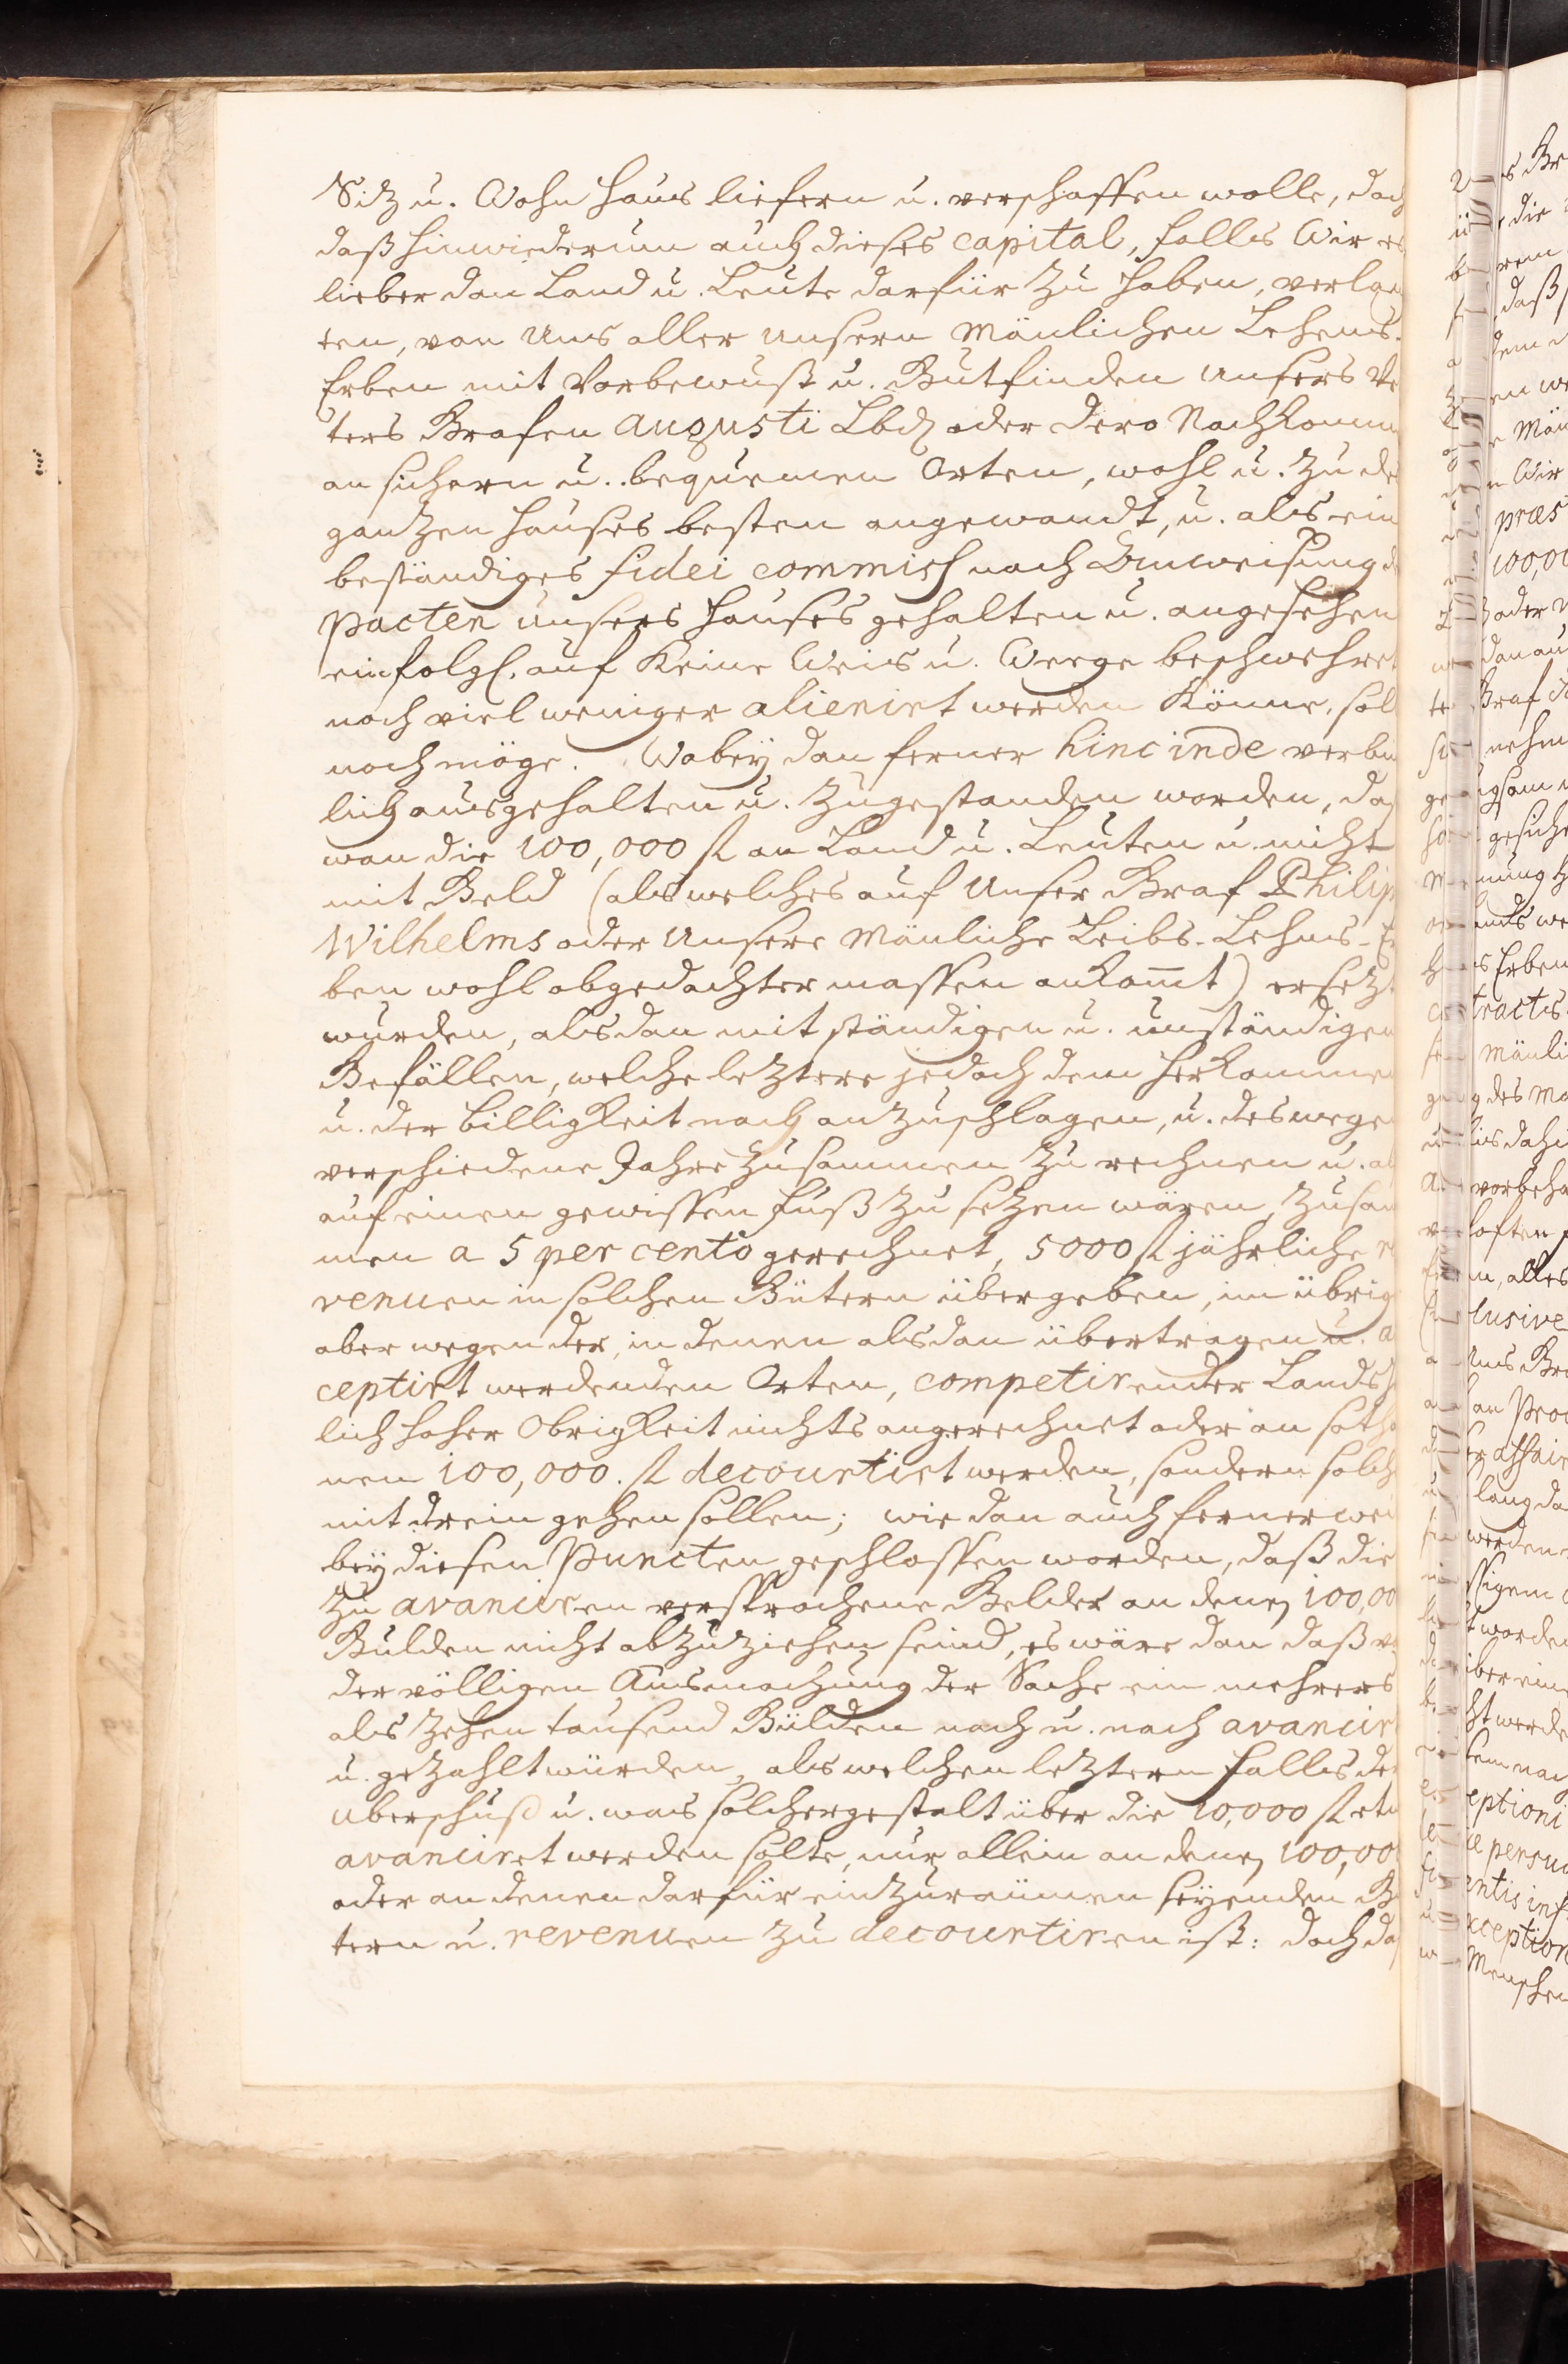 Sitz u. Wohn Haus liefern u. verschaffen wolle, doch
daß hinwiederum auch dieses capital, falls Wir es
lieber dan Land u. Leute darfür zu haben, verlan
ten, von Uns aller unsern Mänlichen Lehens-
Erben mit Vorbewust u. Gutfinden unsers Ve
ters Grafen Augusti Lbd oder dero Nachkomm
an sichern u. bequemen Orten, wohl u. zu de
gantzen Hauses besten angewandt, u. als ein
beständiges fidei commiss nach Anweisung d
pacten unsers Hauses gehalten u. angesehen
einfolgl. auf keine Weis u. Weege beschwehret
noch viel weniger alienirt werden könne, sol
noch möge. Wobey dan ferner hinc inde verbin
lich ausgehalten u. zugestanden worden, daß
wan die 100,000 fl an Land u. Leuten u. nicht
mit Geld (als welches auf Unser Graf Philip
Wilhelms oder Unsere Mänliche Leibs-Lehns-Er
ben wohl abgedachter massen ankomt) ersetzt
wurden, alsdan mit ständigen u. unständigen
Gefällen, welche leztere jedoch dem Herkommen
u. der Billigkeit nach anzuschlagen, u. deswegen
verschiedene Jahre zusammen zu rechnen u. al
auf einen gewissen Fuß zu setzen wären, zusam
men a 5 per cento gerechnet, 5000 fl jährliche re
venuen in solchen Gütern übergeben, im übrig
aber wegen der, in denen alsdan übertragen u. a
ceptirt werdenden Orten, competirender Lands
lich hoher Obrigkeit nichts angerechnet oder an sotha
nen 100,000. fl decourtirt werden, sondern solch
mit drein gehen sollen; wie dan auch ferner wei
bey diesen Puncten geschlossen worden, daß die
zu avanciren versprochene Gelder an denen 100,00
Gulden nicht abzuziehen seind, es wäre dan daß v
der völligen Ausmachung der Sache ein mehrers
als zehen tausend Gülden nach u. nach avancir
u. gezahlt würden, als welchen leztern falls de
Uberschuß u. was solchergestalt über die 10,000 fl etw
avanciret werden solte, nur allein an denen 100,00
oder an denen darfür einzuraümen seyenden Gü
tern u. revenuen zu decourtiren ist: doch da